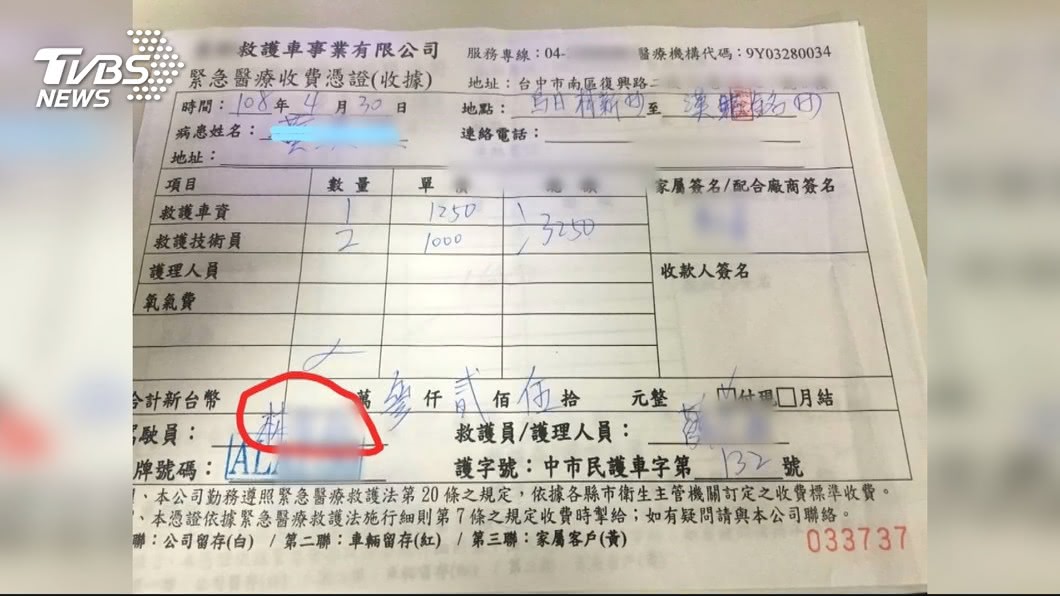 TVBS
NEWS
救護車事業有限公司 服務專線：04- 醫療機構代碼：9Y03280034
緊急醫療收費憑證(收據) 地址：台中市南區復興路二
時間：108年4月30日 地點：烏日林新 至
病患姓名： 連絡電話：
地址：
項目 數量 單 家屬簽名/配合廠商簽名
救護車資 1 1250
救護技術員 2 1000 3250
護理人員 收款人簽名
氧氣費
合計新台幣 萬 參仟貳佰伍拾 元整 付現 □月結
駕駛員：林 救護員/護理人員：
牌號碼：AL 護字號：中市民護車字第132號
、本公司勤務遵照緊急醫療救護法第20條之規定，依據各縣市衛生主管機關訂定之收費標準收費。
、本憑證依據緊急醫療救護法施行細則第7條之規定收費時掣給；如有疑問請與本公司聯絡。
聯：公司留存(白) / 第二聯：車輛留存(紅) / 第三聯：家屬客戶(黃) 033737